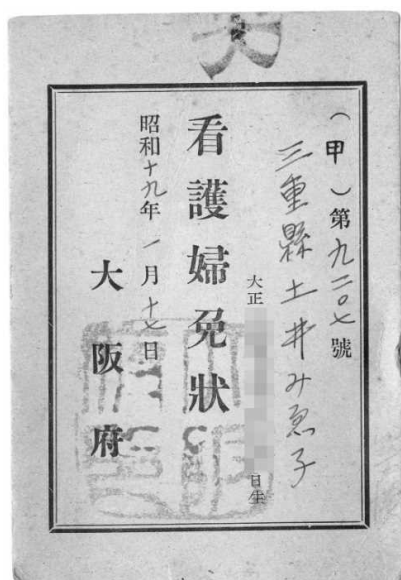 （甲）第九二〇七號
三重縣 土井み惠子
大正 日生
看護婦免狀
昭和十九年一月十七日
大阪府